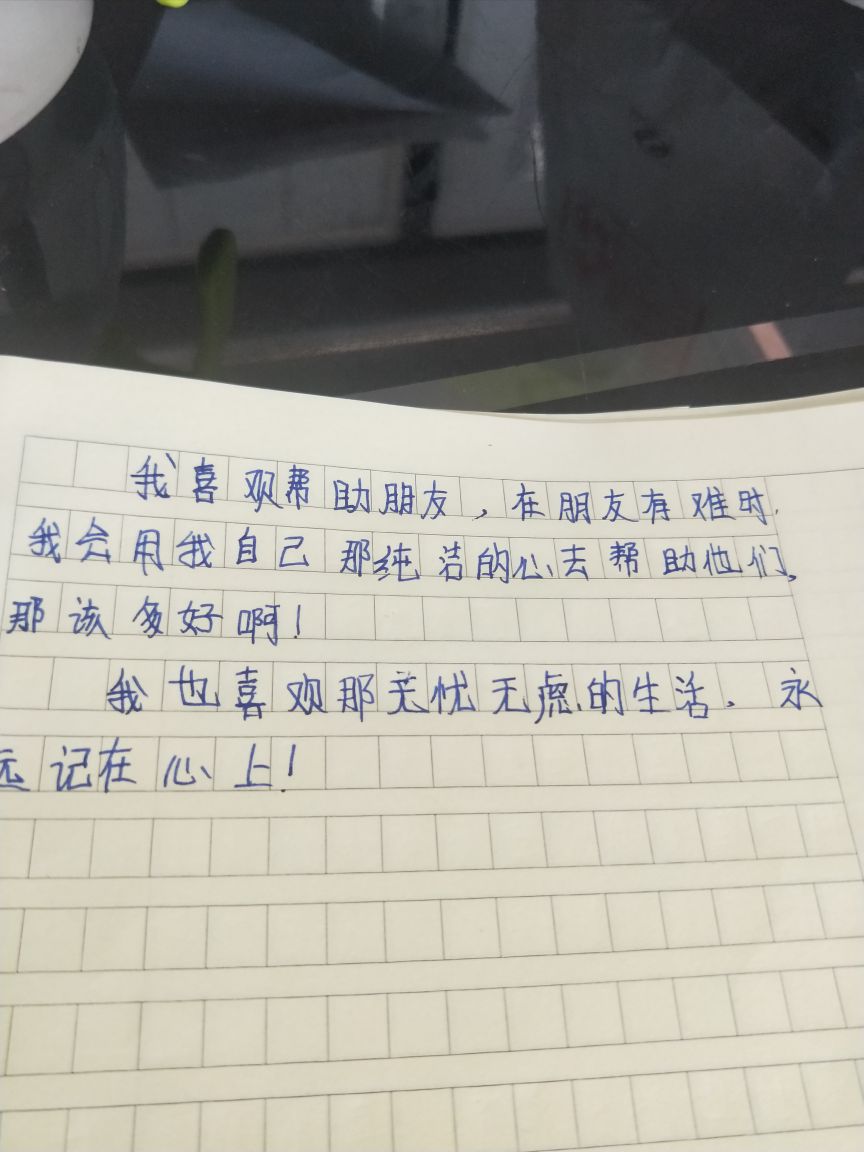 我喜欢帮助朋友，在朋友有难时.
我会用我自己那纯洁的心去帮助他们。
那该多好啊！
我也喜欢那无忧无虑的生活.永
远记在心上！